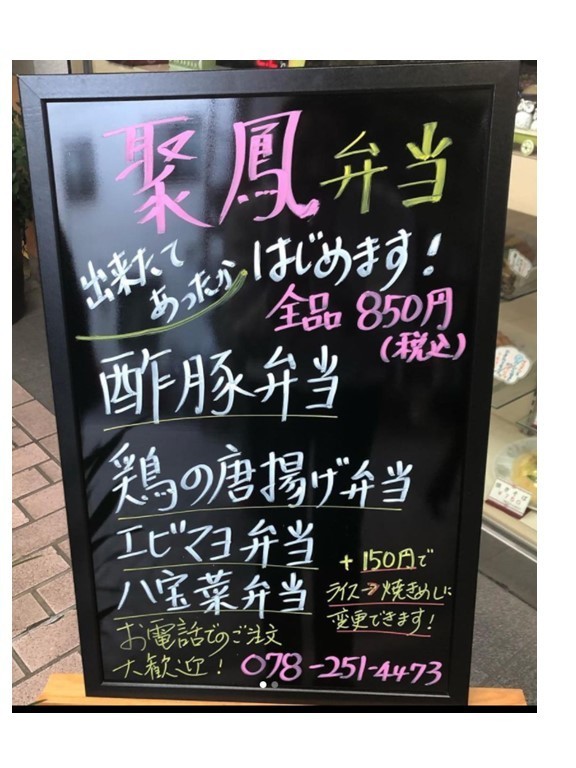 聚鳳弁当
出来たて
あったか
はじめます!
全品 850円
(税込)
酢豚弁当
鶏の唐揚げ弁当
エビマヨ弁当
八宝菜弁当
+150円で
ライス→焼きめしに
変更できます!
お電話でのご注文
大歓迎! 078-251-4473